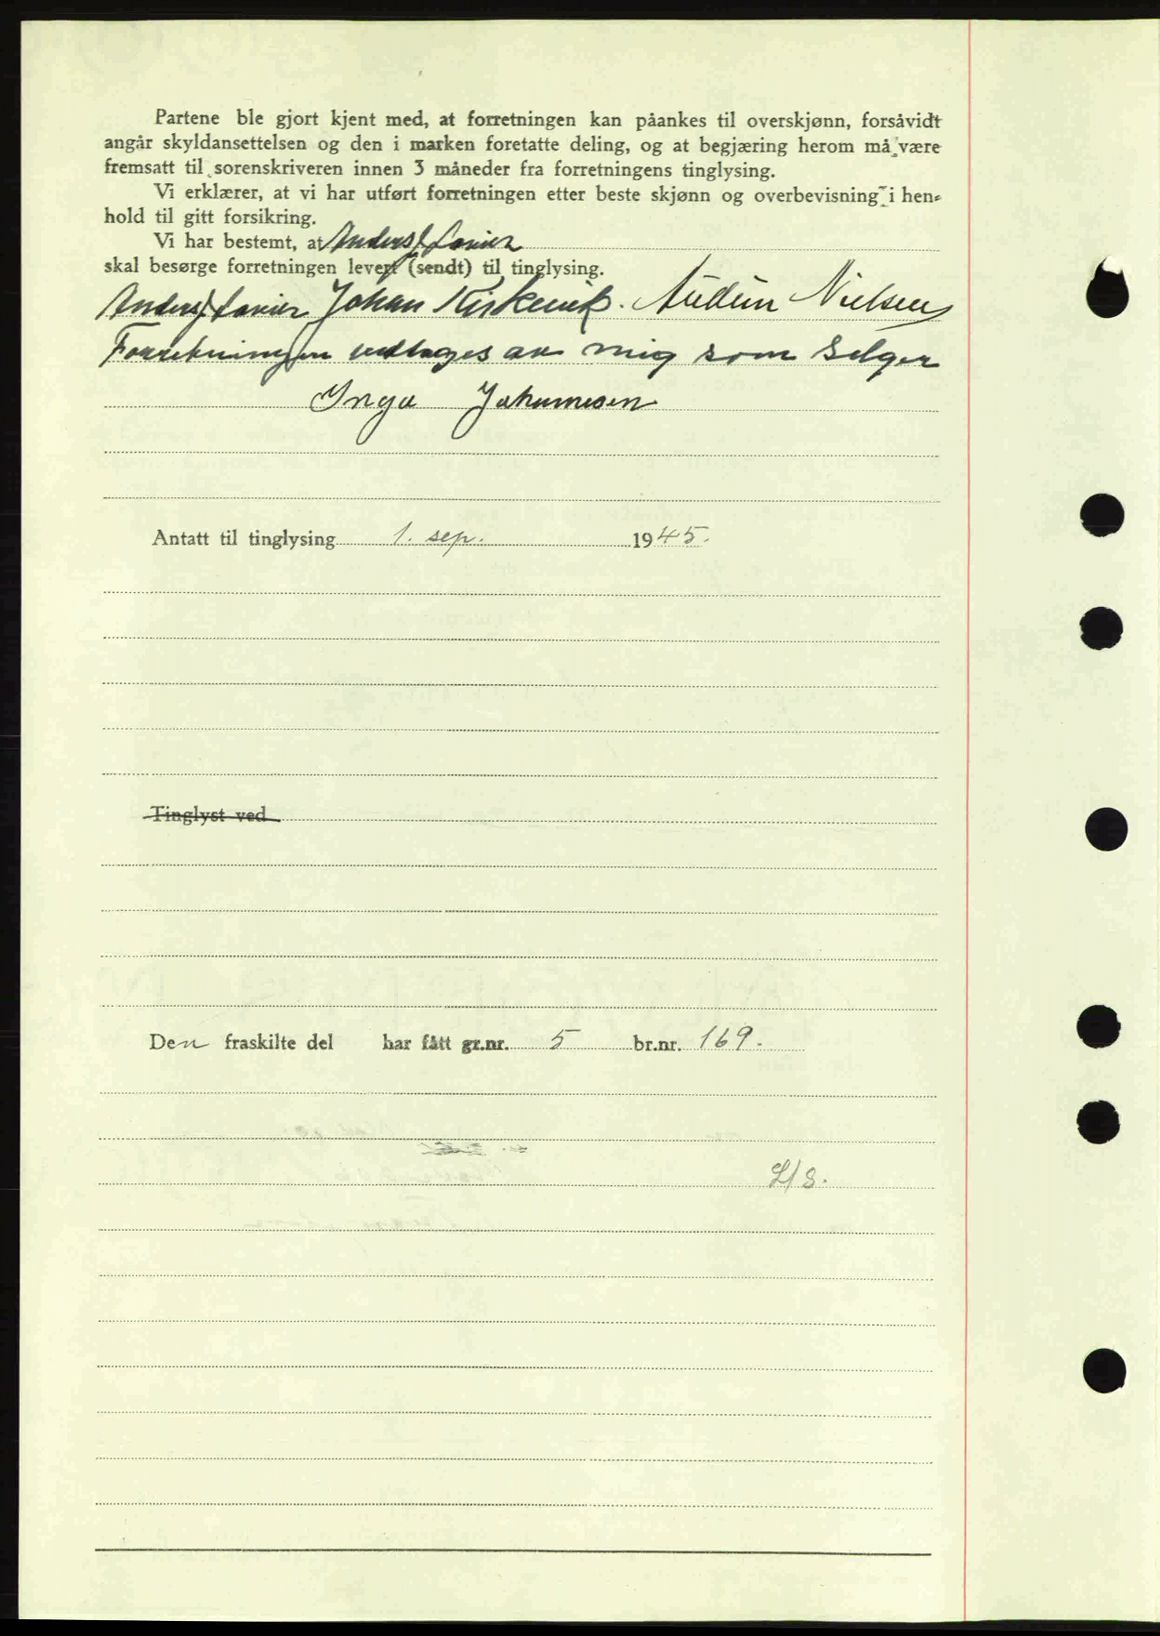 Partene ble gjort kjent med, at forretningen kan påankes til overskjønn, forsåvidt
angår skyldansettelsen og den i marken foretatte deling, og at begjæring herom må være
fremsatt til sorenskriveren innen 3 måneder fra forretningens tinglysing.
Vi erklærer, at vi har utført forretningen etter beste skjønn og overbevisning i hen-
hold til gitt forsikring.
Vi har bestemt, at Anders J Lavier
skal besørge forretningen levert (sendt) til tinglysing.
Anders J Lavier Johan Kirkevik. Audun Nielsen
Forretningen vedtages av mig som Selger
Inga Johannesen
Antatt til tinglysing 1. sep. 1945.
Tinglyst ved
Den fraskilte del har fått gr.nr. 5 br.nr. 169.